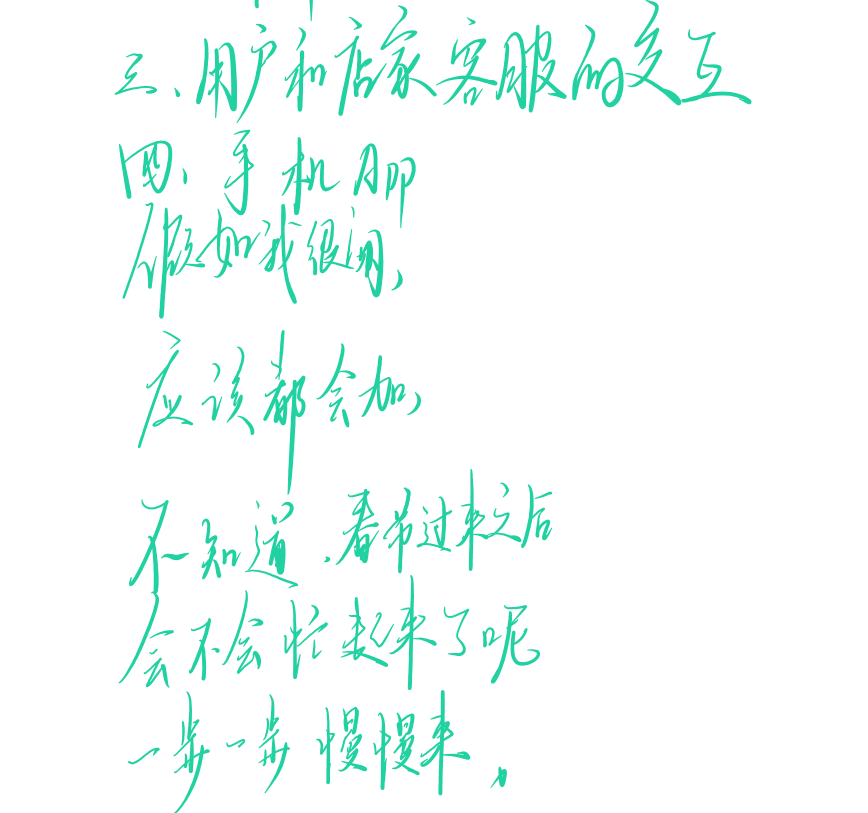 三、用户和店家客服的交互
四、手机APP
假如我很闲,
应该都会加,
不知道,春节过来之后
会不会忙起来了呢
一步一步慢慢来。